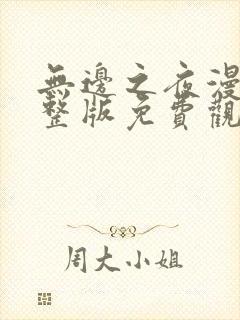 無邊之夜漫
整版免費觀
周大小姐